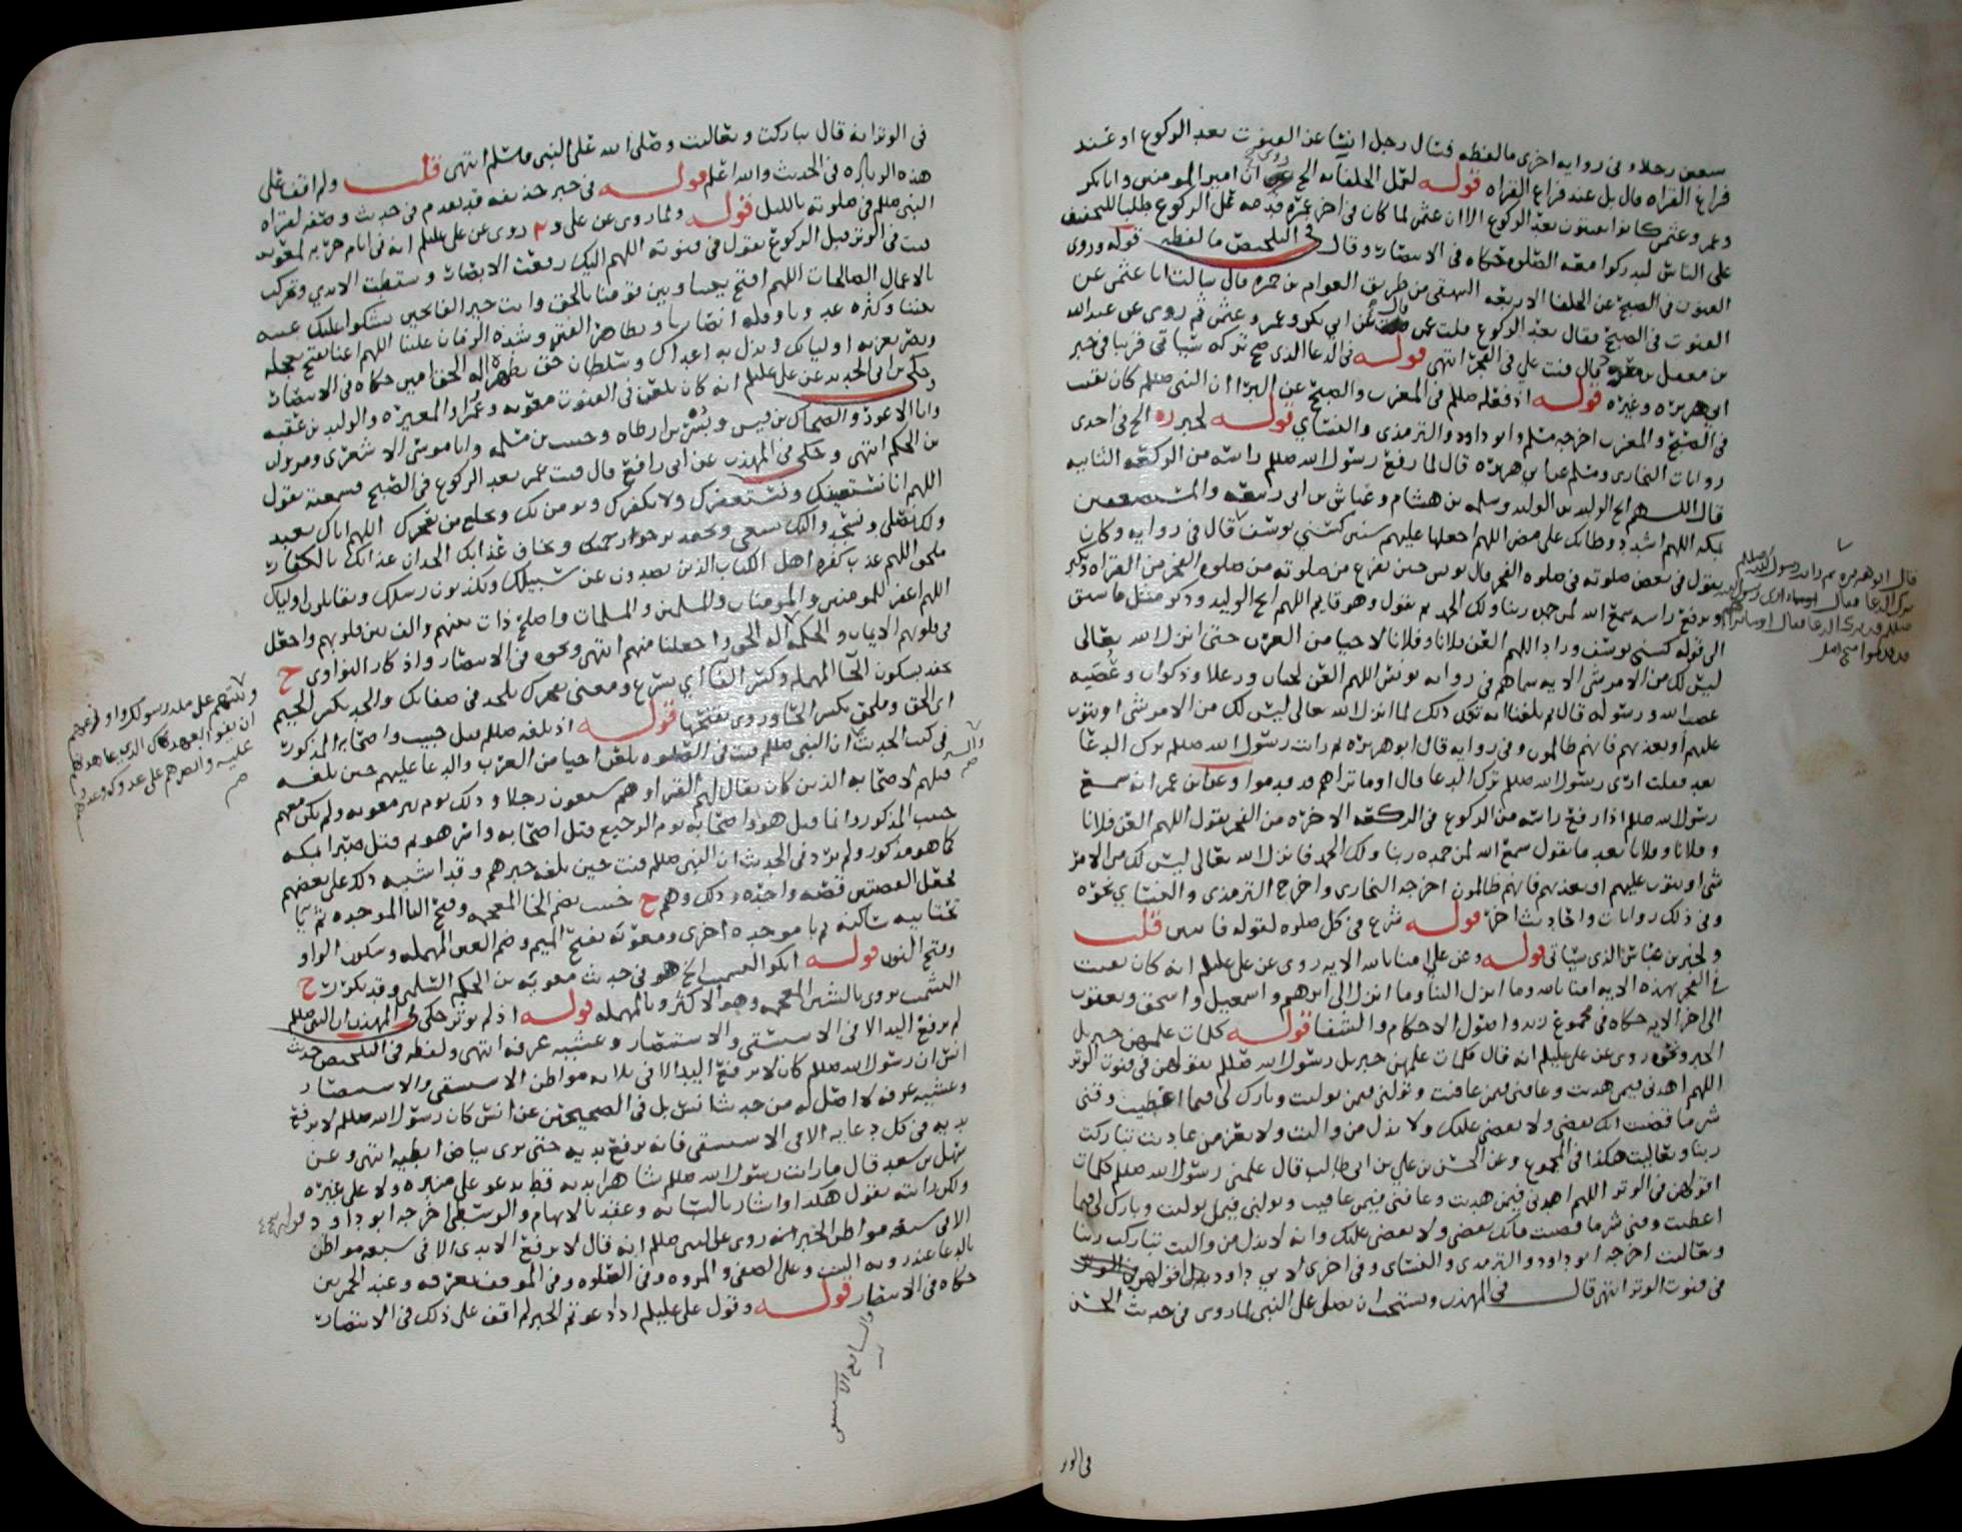 سبعين رجلا وفى روايه اخرى ما لفظه فسال رجل انسا عن القنوت بعد الركوع او عند
فراغ القراه قال بل عند فراغ القراه قوله لفعل الخلفا به الخ روى ان امير المومنين وابابكر
وعمر وعثمن كانوا يقنتون بعد الركوع الا ان عثمن لما كان فى اخر عمره قدمه قبل الركوع طلبا للتخفيف
على الناس ليدركوا معه الصلوه حكاه فى الانتصار وقال فى التلخيص ما لفظه قوله وروى
القنوت فى الصبح عن الخلفا الاربعه البيهقى من طريق العوام بن حمزه قال سالت ابا عثمن عن
القنوت فى الصبح فقال بعد الركوع قلت عمن قال عن ابى بكر وعمر وعثمن ثم روى عن عبدالله
بن معقل قال قنت على فى الفجر انتهى قوله فى الدعا الذى صح تركه سياتى قريبا فى خبر
ابى هريره وغيره قوله اذ فعله صللم فى المغرب والصبح عن البرا ان النبى صللم كان يقنت
فى الصبح والمغرب اخرجه مسلم وابو داود والترمذى والنسائي قوله لخبر ره الخ فى احدى
روايات البخارى ومسلم عن ابى هريره قال لما رفع رسول الله صللم راسه من الركعه الثانيه
قال اللهم انج الوليد بن الوليد وسلمه بن هشام وعياش بن ابى ربيعه والمستضعفين
بمكه اللهم اشدد وطاتك على مضر اللهم اجعلها عليهم سنين كسني يوسف قال فى روايه وكان
يقول فى بعض صلوته فى صلوه الفجر قال يونس حين يفرغ من صلوته من صلوه الفجر من القراه ويكبر
ويرفع راسه سمع الله لمن حمده ربنا ولك الحمد ثم يقول وهو قايم اللهم انج الوليد وذكر مثل ما سبق
الى قوله كسنى يوسف وزاد اللهم العن فلانا وفلانا لاحيا من العرب حتى انزل الله تعالى
ليس لك من الامر شى الايه سماهم فى روايه يونس اللهم العن لحيان ورعلا وذكوان وعصيه
عصت الله ورسوله قال ثم بلغنا انه ترك ذلك لما انزل الله تعالى ليس لك من الامر شى او يتوب
عليهم او يعذبهم فانهم ظالمون وفى روايه قال ابو هريره ثم رايت رسول الله صللم ترك الدعا
بعد فقلت ارى رسول الله صللم ترك الدعا قال اوما تراهم قد قدموا وعن ابن عمر انه سمع
رسول الله صللم اذا رفع راسه من الركوع فى الركعه الاخره من الفجر يقول اللهم العن فلانا
وفلانا وفلانا بعد ما يقول سمع الله لمن حمده ربنا ولك الحمد فانزل الله تعالى ليس لك من الامر
شى او يتوب عليهم او يعذبهم فانهم ظالمون اخرجه البخارى واخرج الترمذى والنسائي نحوه
وفى ذلك روايات واحاديث اخر قوله شرع فى كل صلوه لقوله قانتين قلت
ولخبر بن عباس الذى سياتى قوله وعن على امنا بالله الايه روى عن على عليلم انه كان يقنت
فى الفجر بهذه الايه امنا بالله وما انزل الينا وما انزل الى ابرهيم واسمعيل واسحق ويعقوب
الى اخر الايه حكاه فى مجموع زيد واصول الاحكام والشفا قوله كلمات علمهن جبريل
الخبر ونحوه روى عن على عليلم انه قال كلمات علمهن جبريل رسول الله صللم يقولهن فى قنوت الوتر
اللهم اهدنى فيمن هديت وعافنى فيمن عافيت وتولنى فيمن توليت وبارك لى فيما اعطيت وقنى
شر ما قضيت انك تقضى ولا يقضى عليك ولا يذل من واليت ولا يعز من عاديت تباركت
ربنا وتعاليت هكذا فى المجموع وعن الحسن بن علي بن ابى طالب قال علمنى رسول الله صللم كلمات
اقولهن فى الوتر اللهم اهدنى فيمن هديت وعافنى فيمن عافيت وتولنى فيمن توليت وبارك لى فيما
اعطيت وقنى شر ما قضيت فانك تقضى ولا يقضى عليك وانه لا يذل من واليت تباركت ربنا
وتعاليت اخرجه ابو داود والترمذى والنسائى وفى اخرى لابي داود بدل اقولهن فى الوتر
فى قنوت الوتر انتهى قال فى المهذب ويستحب ان يصلى على النبى لما روى فى حديث الحسن
قال ابو هريره ثم رايت رسول الله صللم
ترك الدعا فقال
فى الوتر
فى الوتر انه قال تباركت وتعاليت وصلى الله على النبى وسلم انتهى قلت ولم اقف على
هذه الزياده فى الحديث والله اعلم قوله فى خبر حذيفه قد تقدم فى حديث وصفه لقراه
النبى صللم فى صلوته بالليل قوله ولما روى عن على وم روى عن على عليلم انه فى ايام حربه لمعويه
قنت فى الوتر قبل الركوع يقول فى قنوته اللهم اليك رفعت الابصار وبسطت الايدي وتحركت
بالاعمال الصالحات اللهم افتح بيننا وبين قومنا بالحق وانت خير الفاتحين نشكوا عليك غيبه
نبينا وكثره عدونا وقله انصارنا وتظاهر الفتن وشده الزمان علينا اللهم اعنا بفتح تعجله
ونصر تعز به اوليانك وتذل به اعداك وسلطان حق تظهره اله الحق امين حكاه فى الانتصار
وحكى بن ابى الحديد عن على عليلم انه كان يلعن فى القنوت معويه وعمرا والمغيره والوليد بن عقبه
وابا الاعور والضحاك بن قيس وبسر بن ارطاه وحبيب بن مسلمه وابا موسى الاشعرى ومروان
بن الحكم انتهى وحكى فى المهذب عن ابى رافع قال قنت عمر بعد الركوع فى الصبح فسمعته يقول
اللهم انا نستعينك ونستغفرك ولا نكفرك ونومن بك ونخلع من يفجرك اللهم اياك نعبد
ولك نصلى ونسجد واليك نسعى ونحفد نرجوا رحمتك ونخاف عذابك الجد ان عذابك بالكفار
ملحق اللهم عذب كفره اهل الكتاب الذين يصدون عن سبيلك ويكذبون رسلك ويقاتلون اولياك
اللهم اغفر للمومنين والمومنات والمسلمين والمسلمات واصلح ذات بينهم والف بين قلوبهم واجعل
فى قلوبهم الايمان والحكمه اله الحق واجعلنا منهم انتهى ونحوه فى الانتصار واذكار النواوى ح
نحفد بسكون الحا المهمله وكسر الفا اي نسرع ومعنى يفجرك يلحد فى صفاتك والجد بكسر الجيم
اى الحق وملحق بكسر الحا وروى بفتحها قوله اذ بلغه صللم قتل خبيب واصحابه المذكور
فى كتب الحديث ان النبى صللم قنت فى الصلوه يلعن احيا من العرب والدعا عليهم حين بلغه
قتلهم لاصحابه الذين كان يقال لهم القراو هم سبعون رجلا وذلك يوم بير معونه ولم يكن معهم
خبيب المذكور وانما قتل هو واصحابه يوم الرجيع قتل اصحابه واسر هو ثم قتل صبرا بمكه
كما هو مذكور ولم يرد فى الحديث ان النبى صللم قنت حين بلغه خبرهم وقد اشتبه ذلك على بعضهم
لجعل القصتين قصه واحده وذلك وهم ح خبيب بضم الخا المعجمه وفتح البا الموحده ثم يا
تحتانيه ساكنه ثم با موحده اخرى ومعونه بفتح الميم وضم العين المهمله وسكون الواو
وفتح النون قوله الخ هو فى حديث معويه بن الحكم السلمى وقد تكرر ح
التشميت يروى بالشين المعجمه وهو الاكثر وبالمهمله قوله اذ لم يوثر حكى فى المهذب ان النبى صللم
لم يرفع اليد الا فى الاستسقى والاستنصار وعشيه عرفه انتهى ولفظه فى التلخيص حديث
انس ان رسول الله صللم كان لا يرفع اليد الا فى ثلاثه مواطن الاستسقى والاستنصار
وعشيه عرفه لا اصل له من حديث انس بل فى الصحيحين عن انس كان رسول الله صللم لا يرفع
يديه فى كل دعايه الا فى الاستسقى فانه يرفع يديه حتى يرى بياض ابطيه انتهى وعن
سهل بن سعد قال ما رايت رسول الله صللم شاهرا يديه قط يدعو على منبره ولا على غيره
ولكن رايته يقول هكذا واشار بالسبابه وعقد بالابهام والوسطى اخرجه ابو داود قوله
الا فى سبعه مواطن الخبر انه روى عن النبى صللم انه قال لا ترفع الايدى الا فى سبعه مواطن
بالدعا عند رويه البيت وعلى الصفى والمروه وفى الصلوه وفى الموقف بعرفه وعند الجمرتين
حكاه فى الانتصار قوله وقول على عليلم اذا دعوتم الخبر لم اقف على ذلك فى الانتصار
وثبتهم على مله رسولك واوزعهم
ان يوفوا بعهدك الذى عاهدتهم
عليه وانصرهم على عدوك وعدوهم